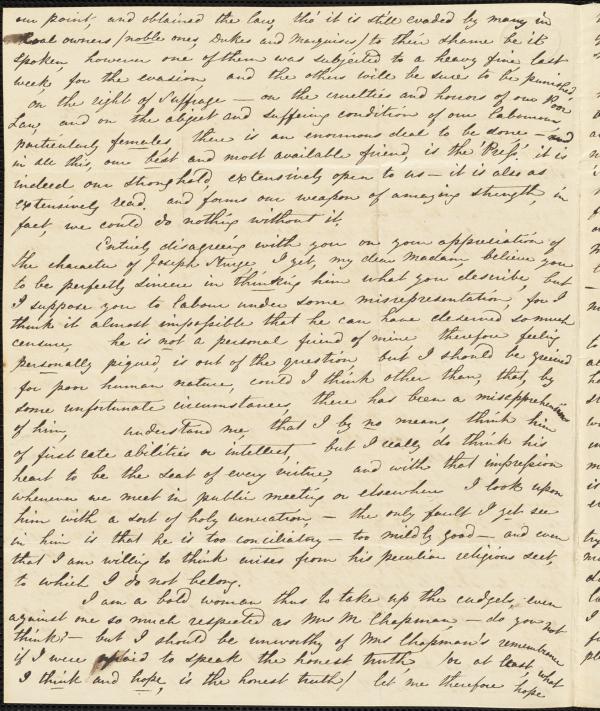 our point, and obtained the law, tho' it is still evaded by many in
Coal owners (noble ones, Dukes and Marquises) to their shame be it
spoken, however one of them was subjected to a heavy fine last
week for the evasion, and the others will be sure to be punished
on the right of Suffrage — on the cruelties and horrors of our Poor
Law, and on the abject and suffering condition of our labourers
particularly females, there is an enormous deal to be done — and
in all this, our best and most available friend is the 'Press,' it is
indeed our stronghold, extensively open to us — it is also as
extensively read. and forms our weapon of amazing strength in
fact, we could do nothing without it.
Entirely disagreeing with you on your appreciation of
the character of Joseph Sturge I yet, my dear Madam, believe you
to be perfectly sincere in thinking him what you describe, but
I suppose you to labour under some misrepresentation, for I
think it almost impossible that he can have deserved so much
censure, he is not a personal friend of mine therefore feeling
personally piqued, is out of the question but I should be grieved
for poor human nature, could I think other than, that, by
some unfortunate circumstances, there has been a misapprehension
of him, understand me, that I by no means, think him
of first rate abilities or intellect, but I really do think his
heart to be the seat of every virtue, and with that impression
whenever we meet in public meeting or elsewhere I look upon
him with a sort of holy veneration, — the only fault I yet see
in him is that he is too conciliatory — too mildly good — and even
that I am willing to think arises from his peculiar religious sect,
to which I do not belong.
I am a bold woman thus to take up the cudgels, even
against one so much respected as Mrs M Chapman — do you not
think? — but I should be unworthy of Mrs Chapman's remembrance
if I were afraid to speak the honest truth, (or at least, what
I think and hope, is the honest truth) let me therefore hope